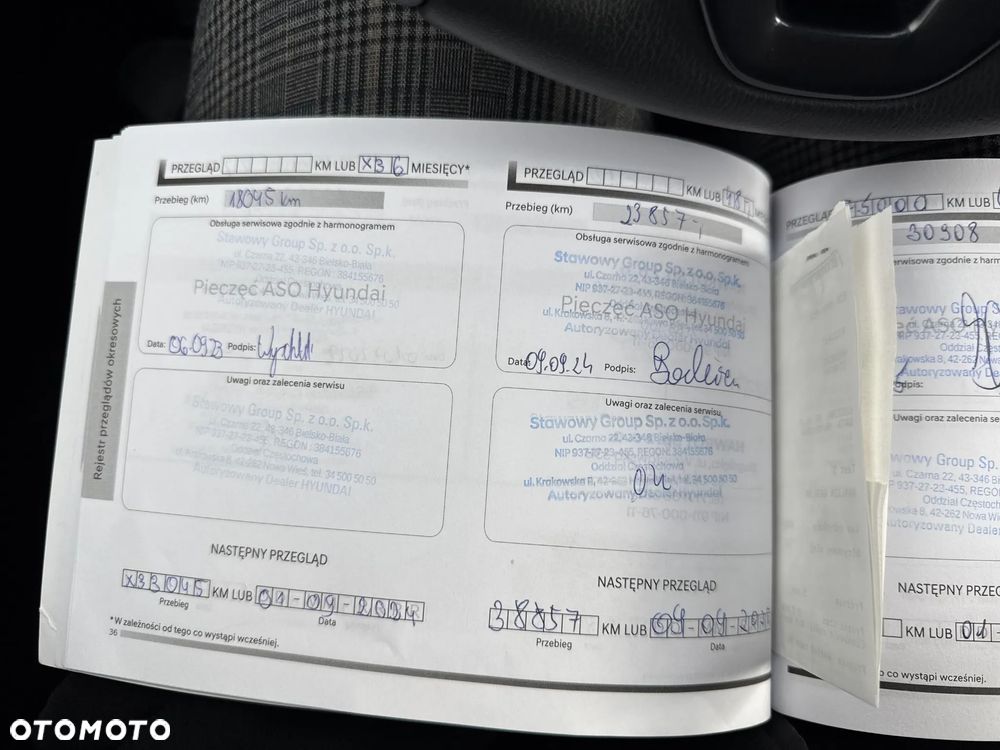 PRZEGLĄD KM LUB X36 MIESIĘCY*
Przebieg (km) 18045 km
Obsługa serwisowa zgodnie z harmonogramem
Stawowy Group Sp. z o.o. Sp.k.
ul. Czarna 22, 43-346 Bielsko-Biała
NIP 937-27-23-455, REGON: 384155676
Pieczęć ASO Hyundai
Autoryzowany Dealer HYUNDAI
Data: 06.09.23 Podpis:
Uwagi oraz zalecenia serwisu
Stawowy Group Sp. z o.o. Sp.k.
ul. Czarna 22, 43-346 Bielsko-Biała
NIP 937-27-23-455, REGON: 384155676
Oddział Częstochowa
ul. Krakowska 8, 42-262 Nowa Wieś, tel. 34 500 50 50
Autoryzowany Dealer HYUNDAI
NASTĘPNY PRZEGLĄD
X33045 KM LUB 01-09-2024
Przebieg Data
*W zależności od tego co wystąpi wcześniej.
36
Rejestr przeglądów okresowych
PRZEGLĄD KM LUB 48
Przebieg (km) 23857
Obsługa serwisowa zgodnie z harmonogramem
Stawowy Group Sp. z o.o. Sp.k.
ul. Czarna 22, 43-346 Bielsko-Biała
NIP 937-27-23-455, REGON: 384155676
Pieczęć ASO Hyundai
ul. Krakowska 8, 34 500 50 50
Autoryzowany Dealer Hyundai
Data: 09.09.24 Podpis:
Uwagi oraz zalecenia serwisu
Stawowy Group Sp. z o.o. Sp.k.
ul. Czarna 22, 43-346 Bielsko-Biała
NIP 937-27-23-455, REGON: 384155676
Oddział Częstochowa
ul. Krakowska 8, tel. 34 500 50 50
Autoryzowany Dealer Hyundai
NASTĘPNY PRZEGLĄD
38857 KM LUB 09-09-202
Przebieg Data
PRZEGLĄD 5000 KM LUB
30908
erwisowa zgodnie z harm
awowy Gro
Oddział Częst
Krakowska 8, 42-262 Nowa
Autoryzowany De
dpis:
Uwagi oraz zalecenia serw
wowy Group Sp.
937-27-23-455, REGO
Oddział Częstoch
42-262 Nowa W
utoryzowany Deale
NASTĘPNY PRZEG
KM LUB 04
o co wystąpi wcześniej.
OTOMOTO